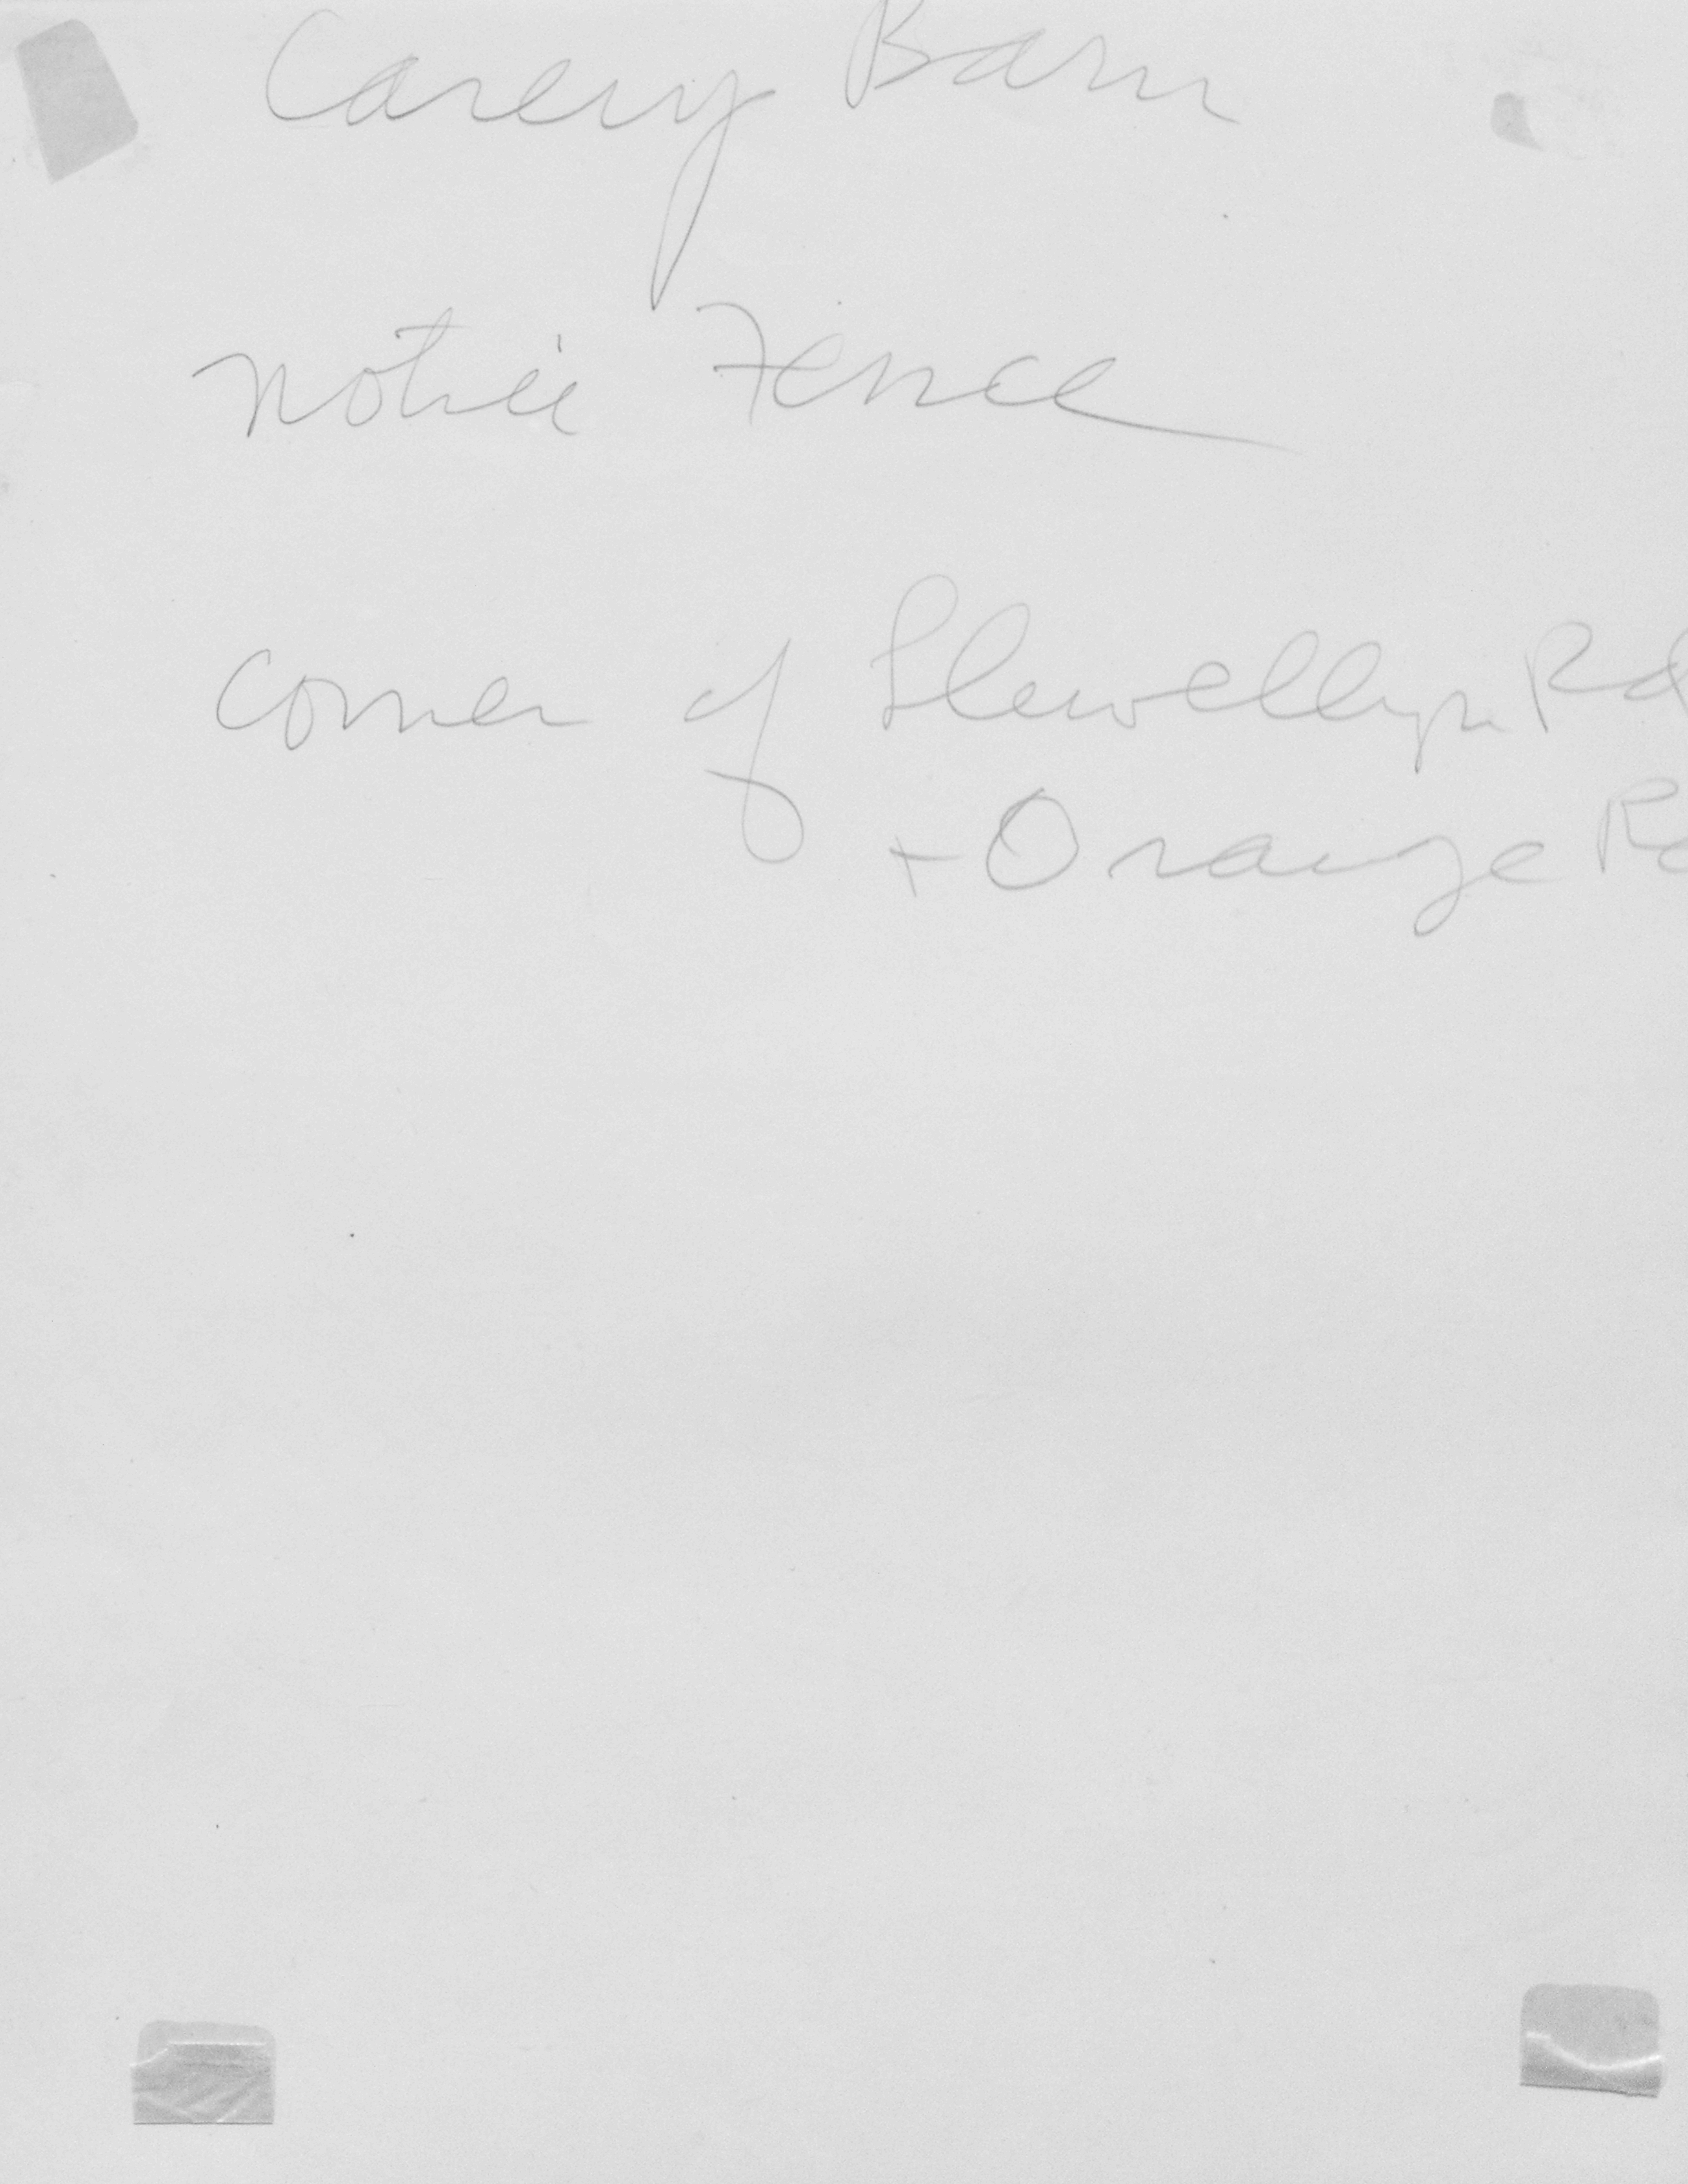 Carey Barn
notice Fence
corner of Llewellyn Rd
+ Orange Rd